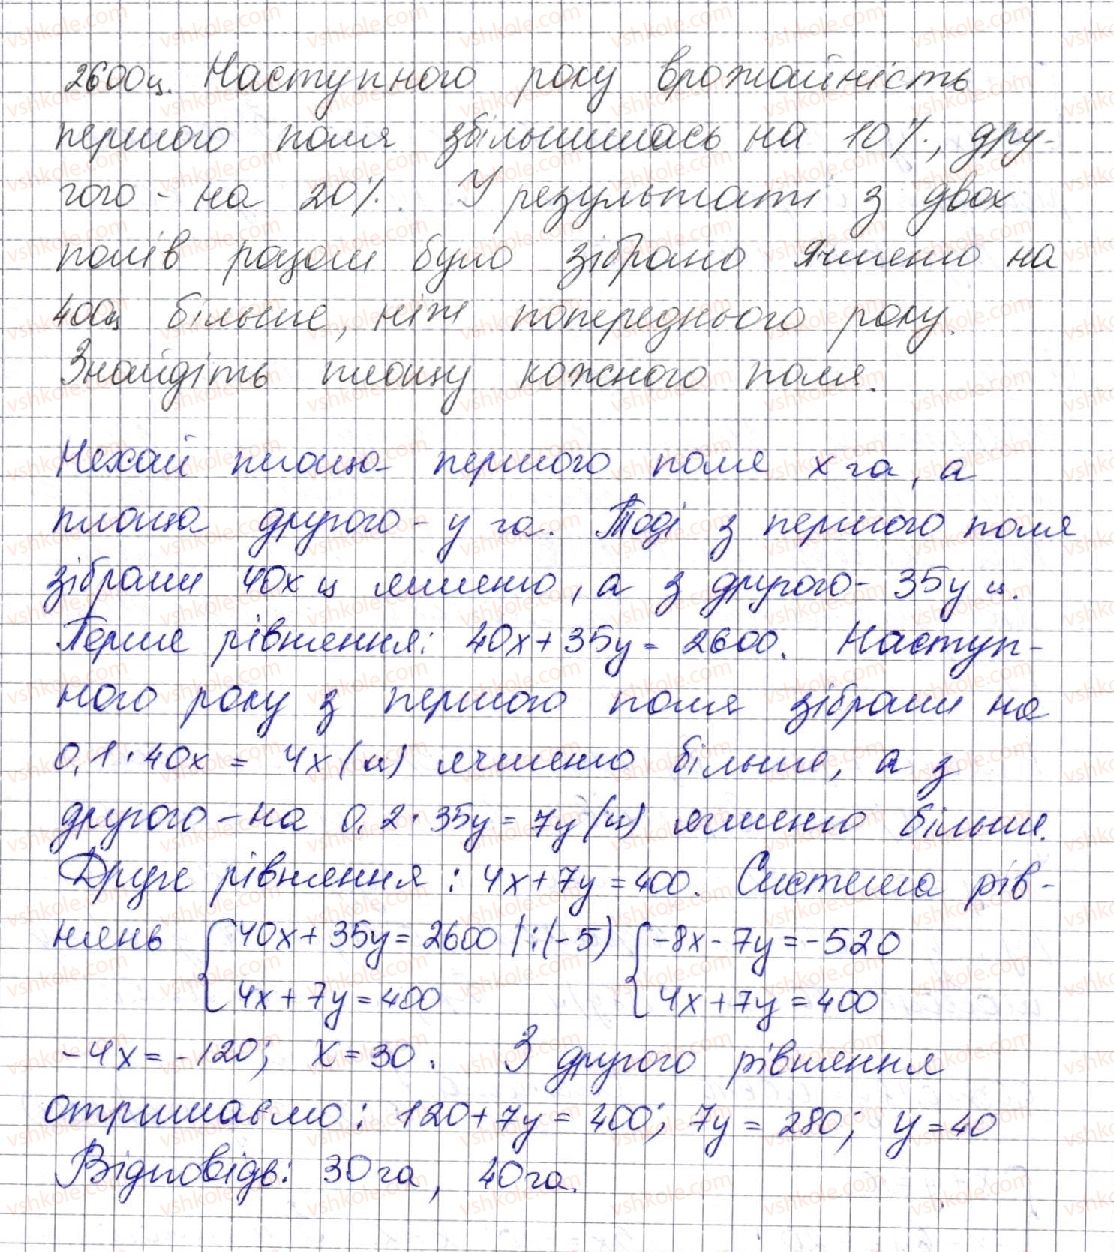 2600ц. Наступного року врожайність
першого поля збільшилась на 10%, дру-
гого - на 20%. У результаті з двох
полів разом було зібрано ячменю на
400ц більше, ніж попереднього року.
Знайдіть площу кожного поля.
Нехай площа першого поля х га, а
площа другого - у га. Тоді з першого поля
зібрали 40х ц ячменю, а з другого - 35у ц.
Перше рівняння: 40х + 35у = 2600. Наступ-
ного року з першого поля зібрали на
0,1 · 40х = 4х (ц) ячменю більше, а з
другого - на 0,2 · 35у = 7у (ц) ячменю більше.
Друге рівняння: 4х + 7у = 400. Система рів-
нянь { 40х + 35у = 2600 | : (-5) { -8х - 7у = -520
4х + 7у = 400 4х + 7у = 400
-4х = -120; х = 30. З другого рівняння
отримаємо: 120 + 7у = 400; 7у = 280; у = 40
Відповідь: 30 га, 40 га.